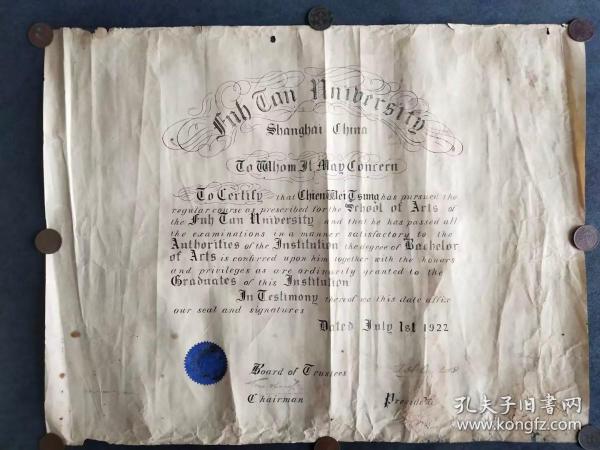 Fuh Tan University
Shanghai China
To Whom It May Concern
To Certify that Chien Wei Tsung has pursued the
regular course as prescribed for the School of Arts of
the Fuh Tan University and that he has passed all
the examinations in a manner satisfactory to the
Authorities of the Institution the degree of Bachelor
of Arts is conferred upon him together with the honors
and privileges as are ordinarily granted to the
Graduates of this Institution
In Testimony thereof we this date affix
our seal and signatures
Dated July 1st 1922
Board of Trustees
Chairman
President
孔夫子旧书网
www.kongfz.com